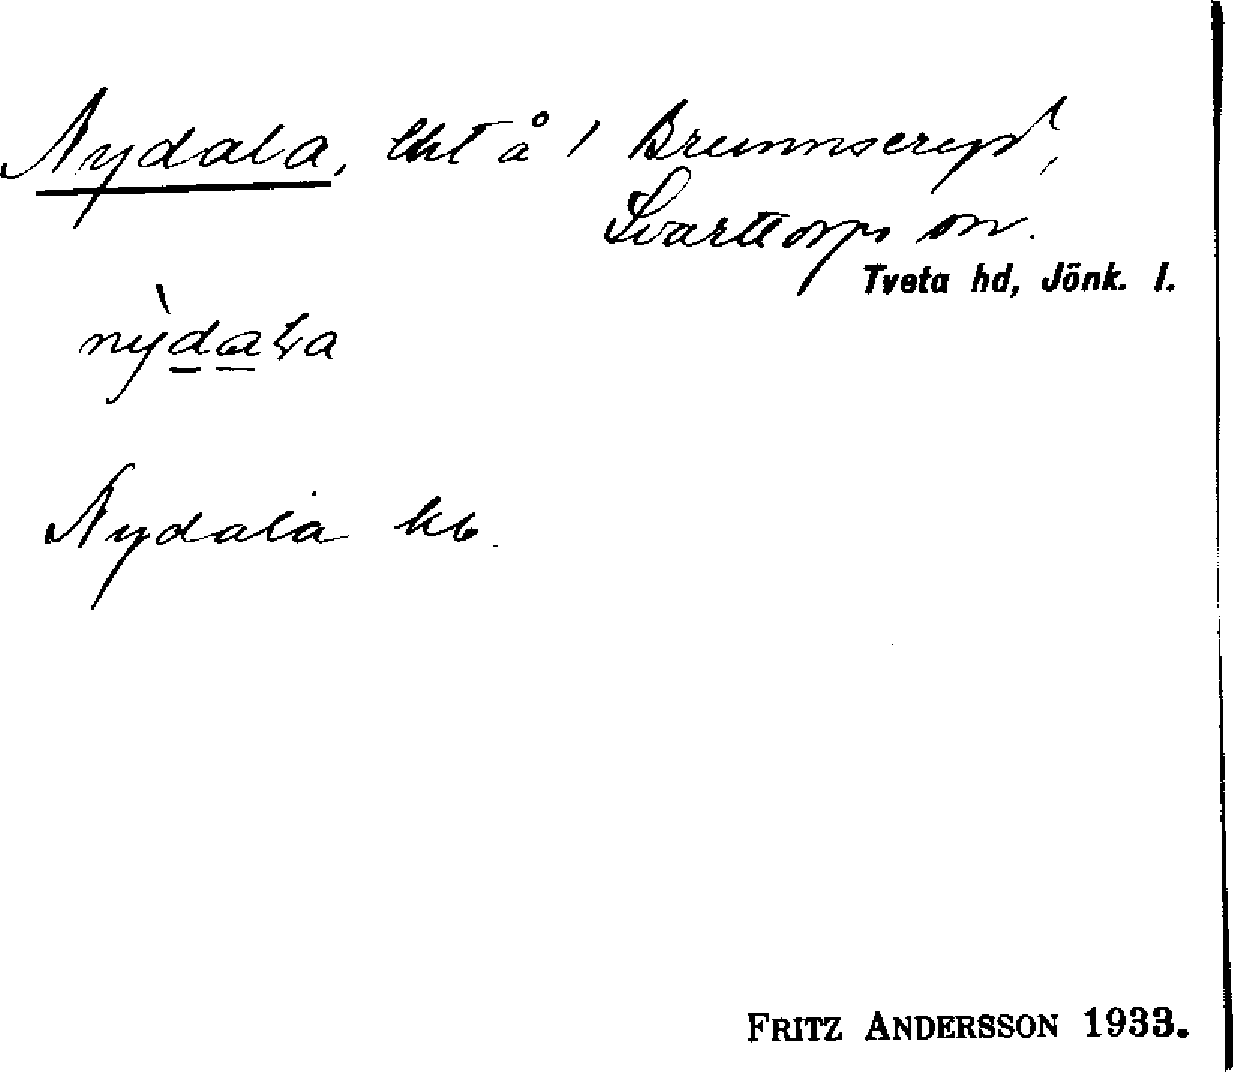 Nydala, lht å 1 Brunnseryd,
Svarttorps sn.
Tveta hd, Jönk. l.
nỳdaLa
Nydala kb.
FRITZ ANDERSSON 1933.